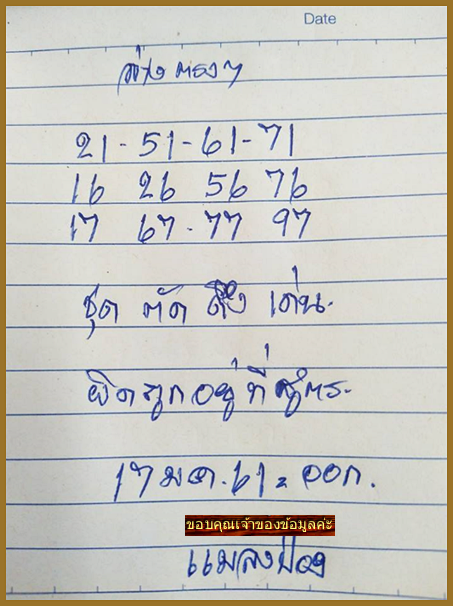 Date
ล่าง ตรงๆ
21 - 51 - 61 - 71
16 26 56 76
17 67 - 77 97
ชุด ตัด ดึง เด่น.
ผิดถูกอยู่ที่สูตร.
17 มค. 61 = ออก.
ขอบคุณเจ้าของข้อมูลค่ะ
แมลงป่อง